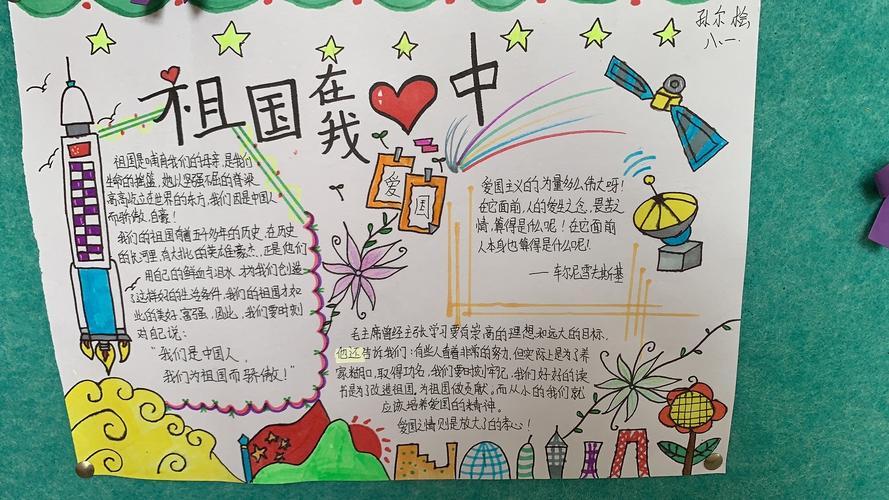 孙尔桧
八.一.
祖国在我中
爱国
祖国是哺育我们的母亲,是我们
生命的摇篮,她以坚强不屈的脊梁
高高屹立在世界的东方,我们因是中国人
而骄傲、自豪!
我们的祖国有着五千多年的历史,在历史
的长河里,有太多的英雄豪杰,正是他们
用自己的鲜血与泪水,才为我们创造
了这样好的生活条件,我们的祖国才如
此的美好、富强,因此,我们要时刻
对自己说:
"我们是中国人,
我们为祖国而骄傲!"
爱国主义的力量多么伟大呀!
在它面前,人的爱生之念,畏苦之
情,算得是什么呢!在它面前
人本身也算得是什么呢!
——车尔尼雪夫斯基
毛主席曾经主张学习要有崇高的理想和远大的目标,
他还告诉我们:有些人有着非常的努力,但实际上是为了养
家糊口,取得功名,我们要时刻牢记,我们好好的读
书是为了改造祖国,为祖国做贡献。而从小的我们就
应该培养爱国的精神。
爱国之情则是放大了的孝心!